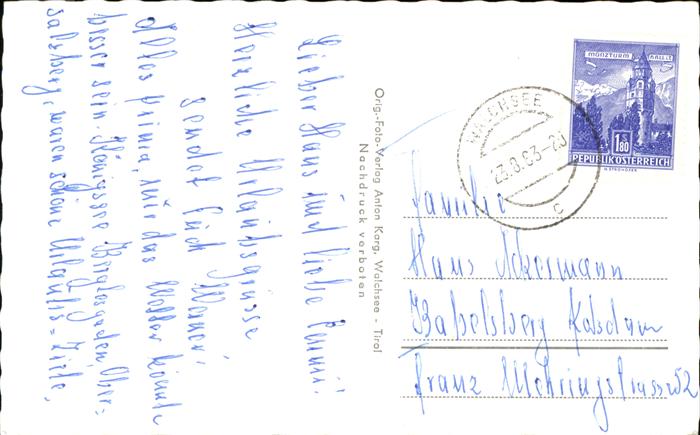 Lieber Hans und liebe Fanni!
Herzliche Urlaubsgrüsse
sendet Euch Werner,
Alles prima, nur das Wetter könnte
besser sein. Königssee Berchtesgaden, Ober=
salzberg, waren schöne Urlaubs=Ziele,
Orig.-Foto-Verlag Anton Karg, Walchsee - Tirol
Nachdruck verboten
MÜNZTURM HALL i.T.
1.80
REPUBLIK ÖSTERREICH
WALCHSEE
23.8.63-20
c
Familie
Hans Ackermann
Babelsberg Potsdam
Franz Mehringstrasse 52